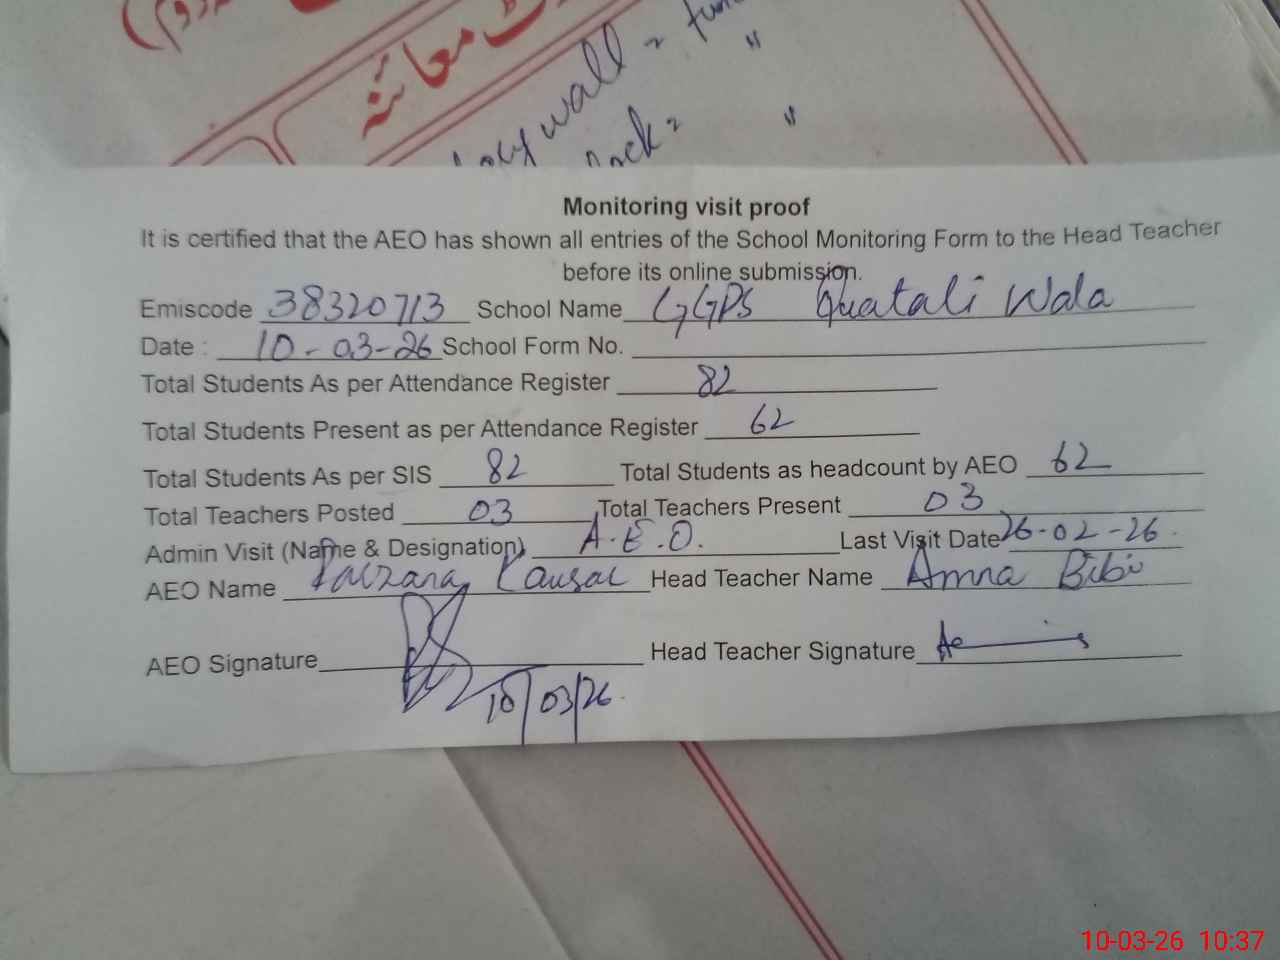 معائنہ
wall =
"
"
Monitoring visit proof
It is certified that the AEO has shown all entries of the School Monitoring Form to the Head Teacher
before its online submission.
Emiscode 38320713 School Name GGPS Quatali Wala
Date : 10-03-26 School Form No.
Total Students As per Attendance Register 82
Total Students Present as per Attendance Register 62
Total Students As per SIS 82 Total Students as headcount by AEO 62
Total Teachers Posted 03 Total Teachers Present 03
Admin Visit (Name & Designation) A.E.O. Last Visit Date 26-02-26.
AEO Name Fauzana Kausar Head Teacher Name Amna Bibi
AEO Signature Head Teacher Signature
10/03/26.
10-03-26 10:37